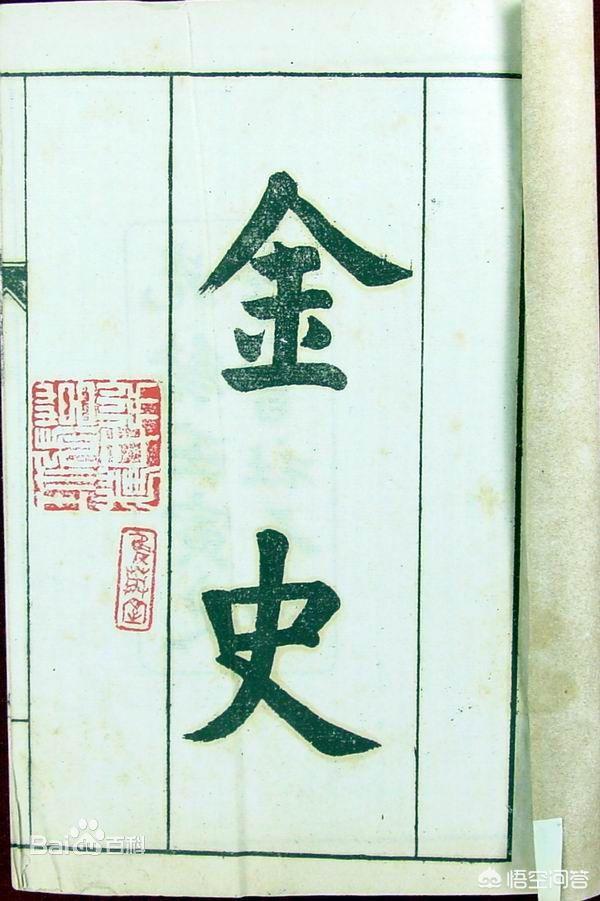 金史
Baidu百科
悟空问答